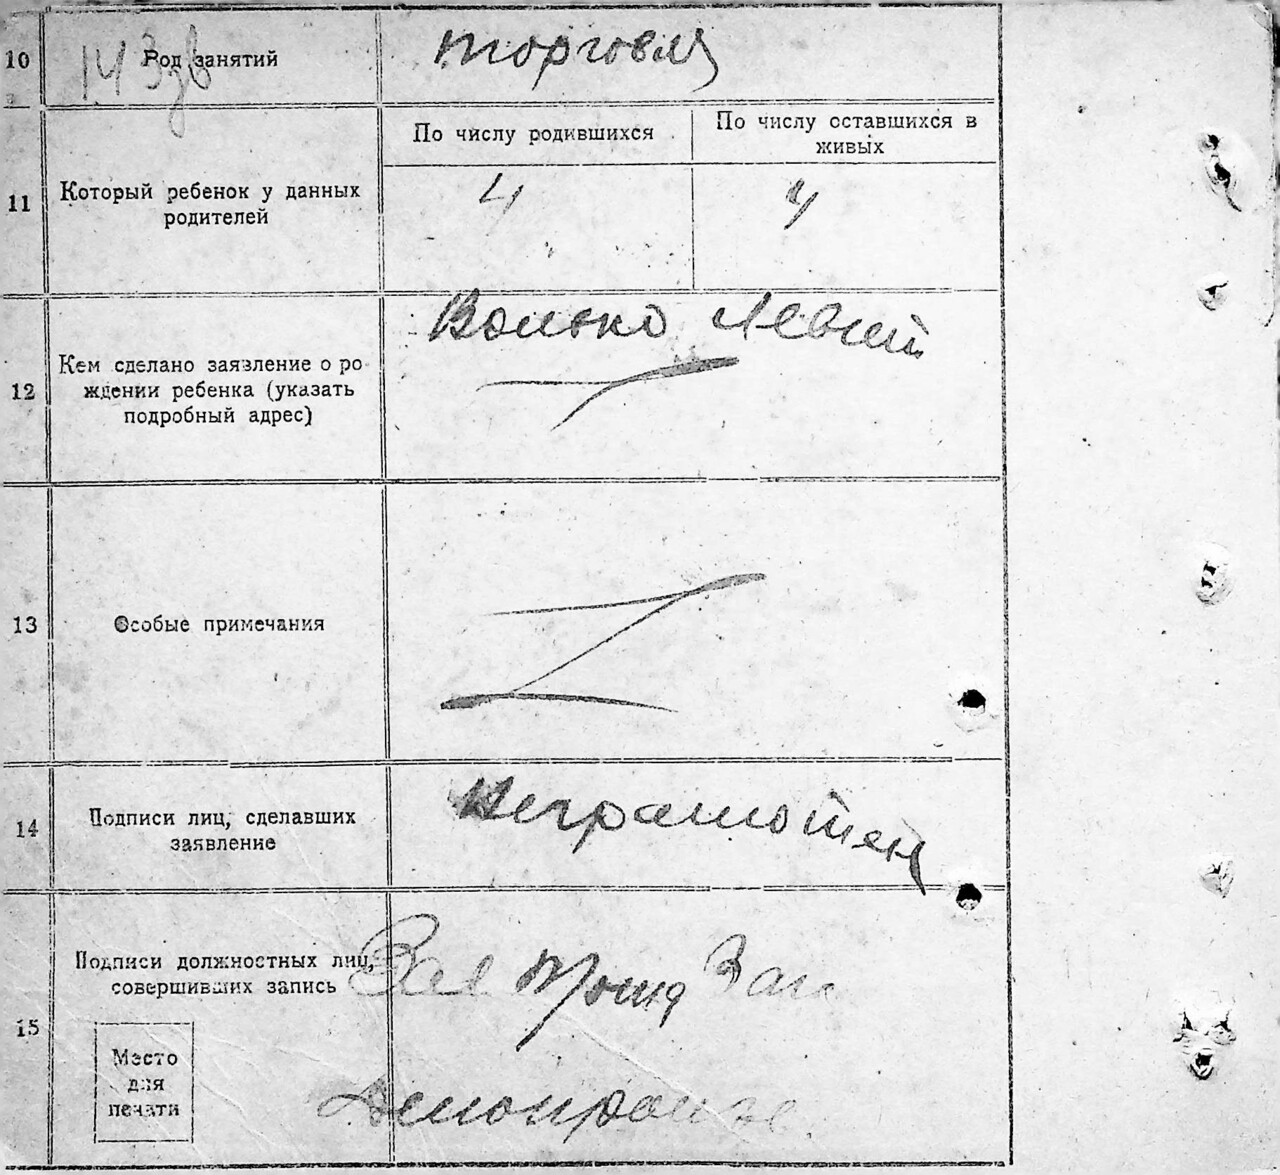 10
Род занятий
143
торговля
По числу родившихся
По числу оставшихся в
живых
11
Который ребенок у данных
родителей
4
4
12
Кем сделано заявление о ро
ждении ребенка (указать
подробный адрес)
Волько Левит
13
Особые примечания
14
Подписи лиц, сделавших
заявление
Неграмотен
15
Подписи должностных лиц,
совершивших запись
Место
для
печати